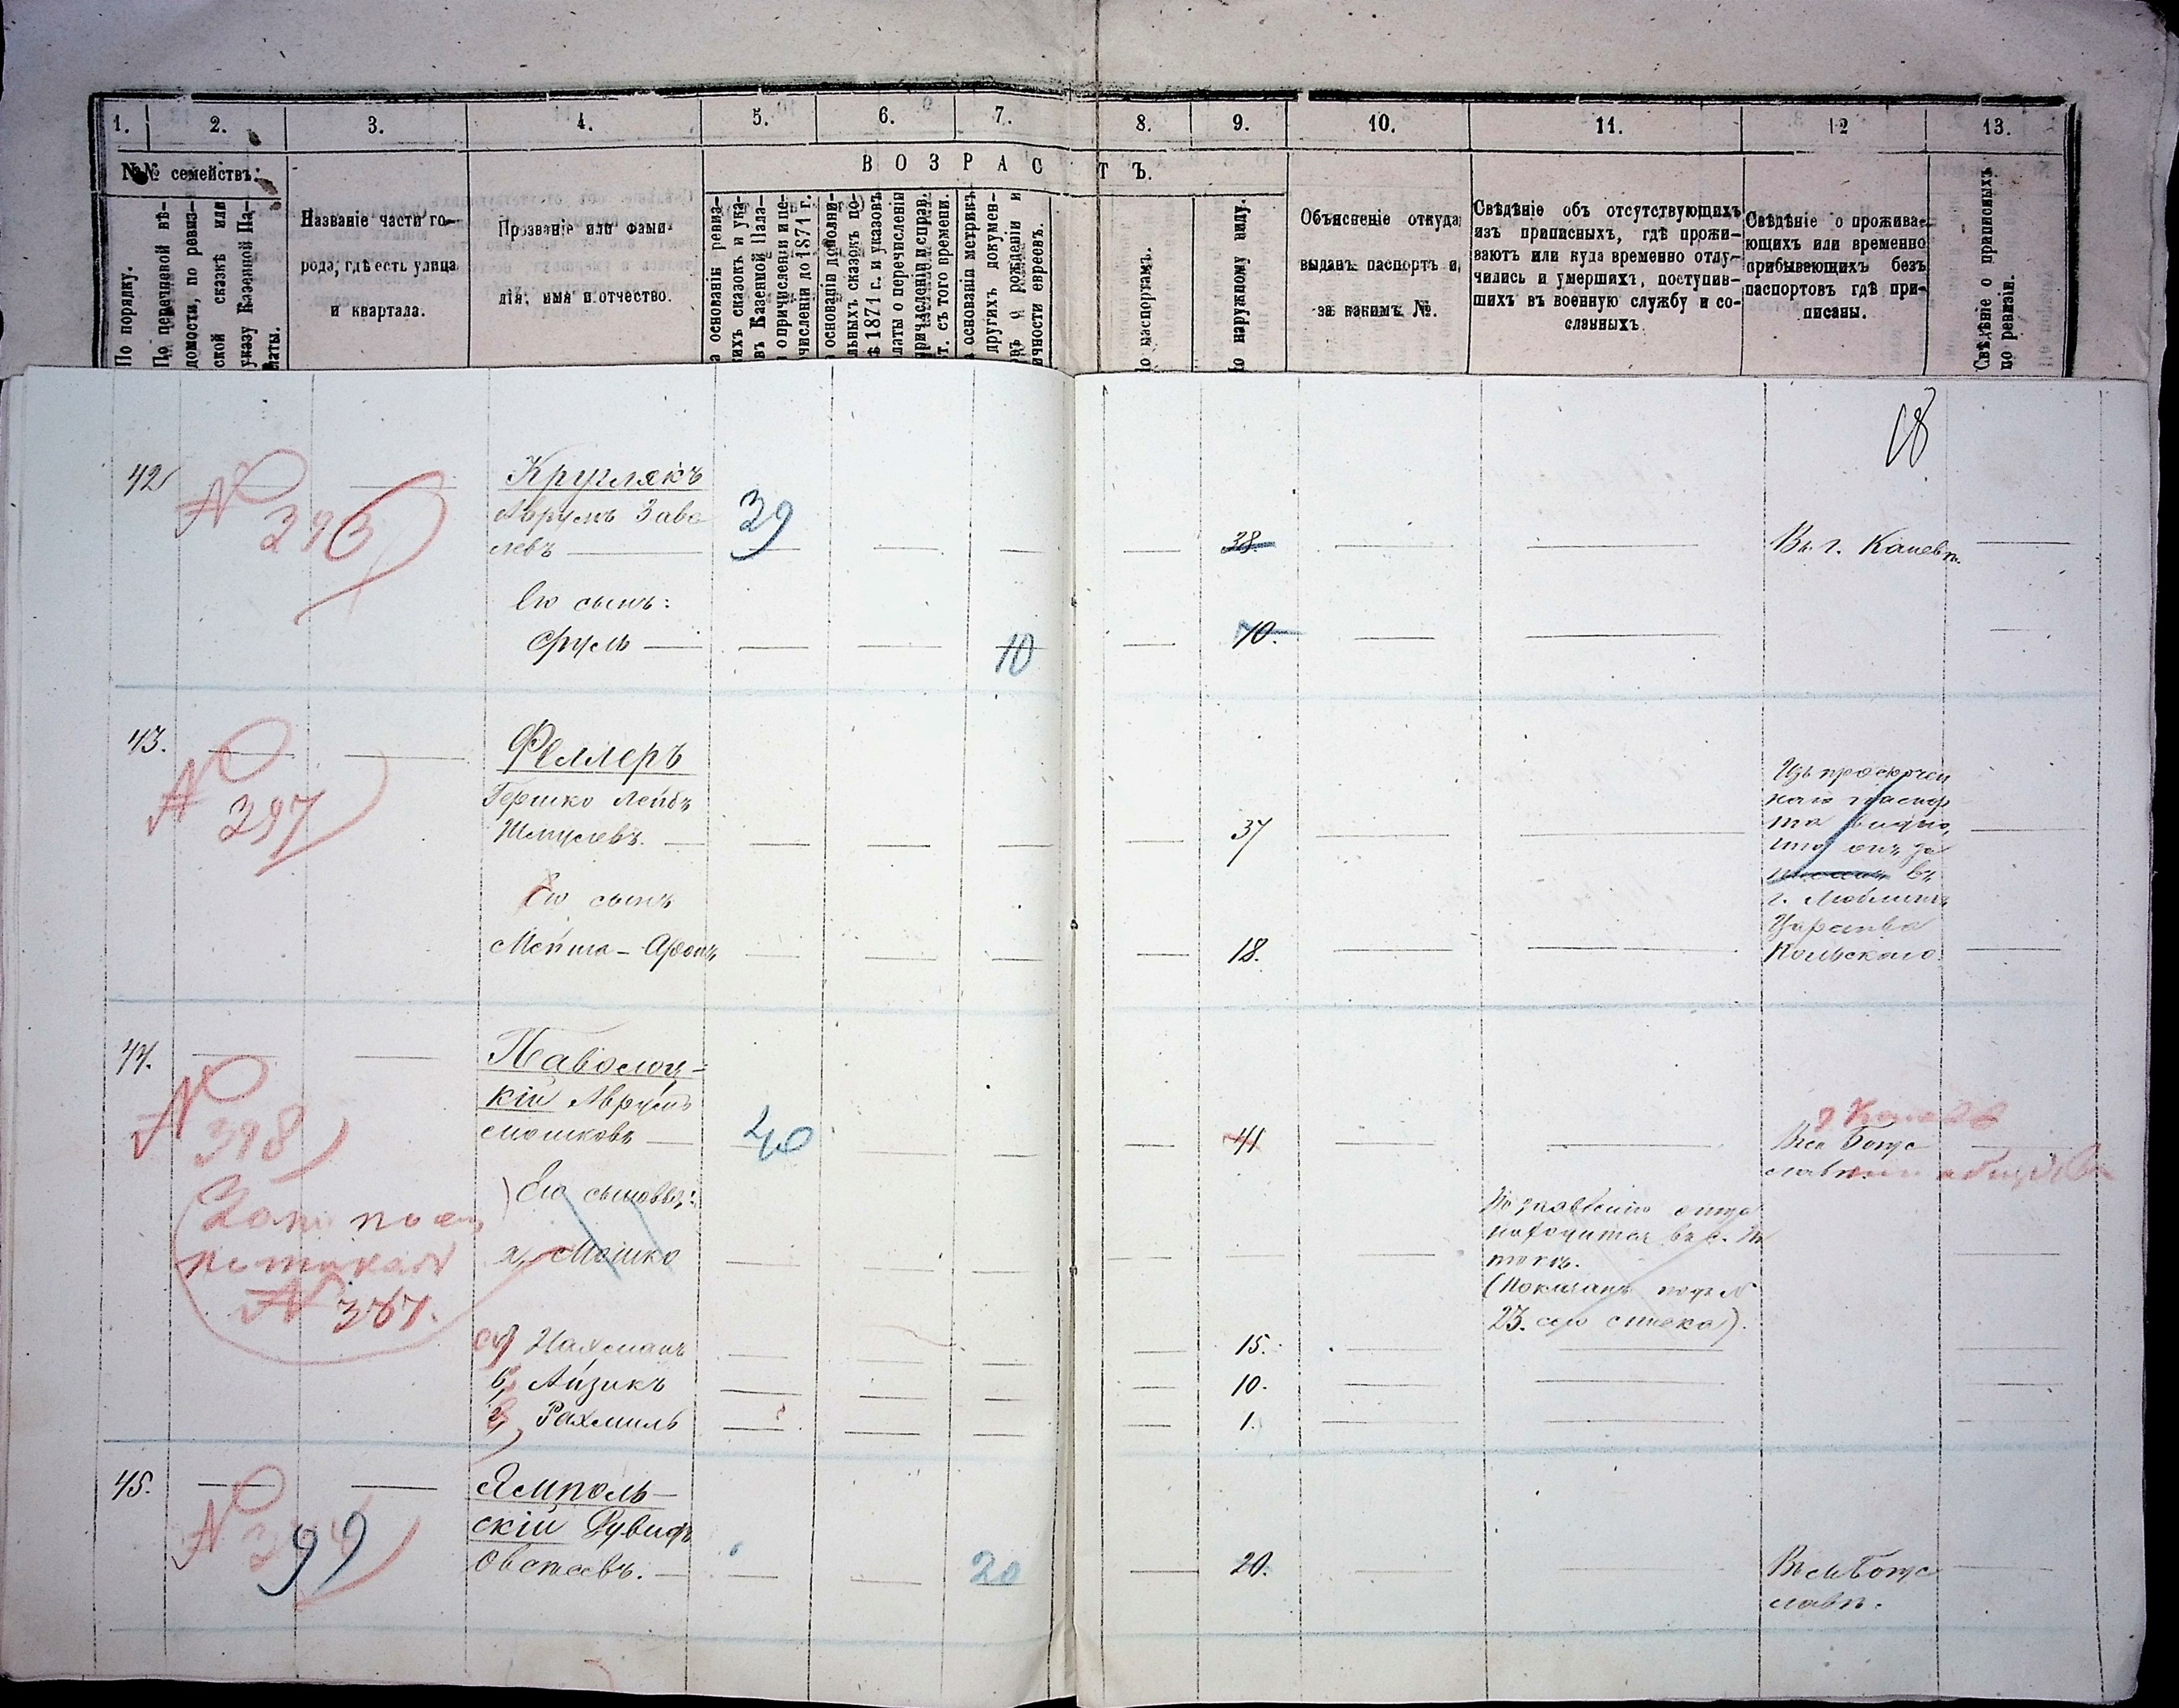 1. 2. 3. 4. 5. 6. 7. 8. 9. 10. 11. 12 13.
№№ семействъ:
ВОЗРАСТЪ.
По порядку.
По перечневой вѣ-
домости, по ревиз-
ской сказкѣ или
указу Казенной Па-
латы.
Названіе части го-
рода, гдѣ есть улица
и квартала.
Прозваніе или фами-
лія, имя и отчество.
а основаніи ревиз-
кихъ сказокъ и ука-
въ Казенной Пала-
о причисленіи и пе-
численіи до 1871 г.
а основаніи дополни-
льныхъ сказокъ по-
ѣ 1871 г. и указовъ
латы о перечисленіи
причисленіи и справ.
т. съ того времени.
а основаніи метрикъ
другихъ докумен-
въ о рожденіи и
ичности евреевъ.
о паспортамъ.
о наружному виду.
Объясненіе откуда
выданъ паспортъ и
за какимъ №.
Свѣдѣніе объ отсутствующихъ
изъ приписныхъ, гдѣ прожи-
ваютъ или куда временно отлу-
чились и умершихъ, поступив-
шихъ въ военную службу и со-
сланныхъ.
Свѣдѣніе о прожива-
ющихъ или временно
прибывающихъ безъ
паспортовъ гдѣ при-
писаны.
Свѣдѣніе о приписныхъ
по ревизіи.
18
42
№
396
Круглякъ
Аврумъ Заве
левъ
39
38.
Въ г. Каневѣ.
Его сынъ:
Сруль
10
10.
43.
№
397
Феллеръ
Гершко Лейбъ
Шмулевъ.
37
Изъ просрочен
наго паспор
та видно,
что онъ за
писанъ въ
г. Люблинѣ
Царства
Польскаго.
Его сынъ
Мейша-Аронъ
18.
44.
№
398
Паволоц-
кій Аврумъ
Мошковъ
40
41
г Каневѣ
Въ м Богу
славѣ.
Его сыновья:
а, Мошко
По заявленію отца
находится въ с.
(Показанъ подъ №
23. сего списка).
№ 387.
а) Нахманъ
15.
б, Айзикъ
10.
Рахмиль
1.
45.
№
399
Ямполь-
скій Рувинъ
Овсеевъ.
20
20.
Въ м Богу
славѣ.